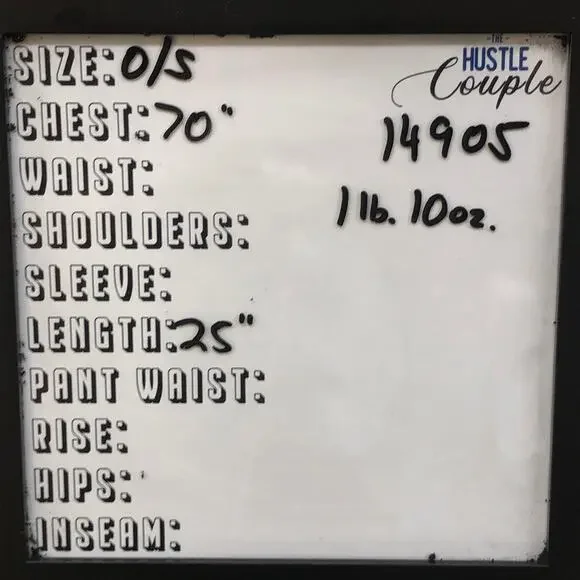 SIZE: O/S
-THE-
HUSTLE
Couple
CHEST: 70"
14905
WAIST:
1 lb. 10oz.
SHOULDERS:
SLEEVE:
LENGTH: 25"
PANT WAIST:
RISE:
HIPS:
INSEAM: